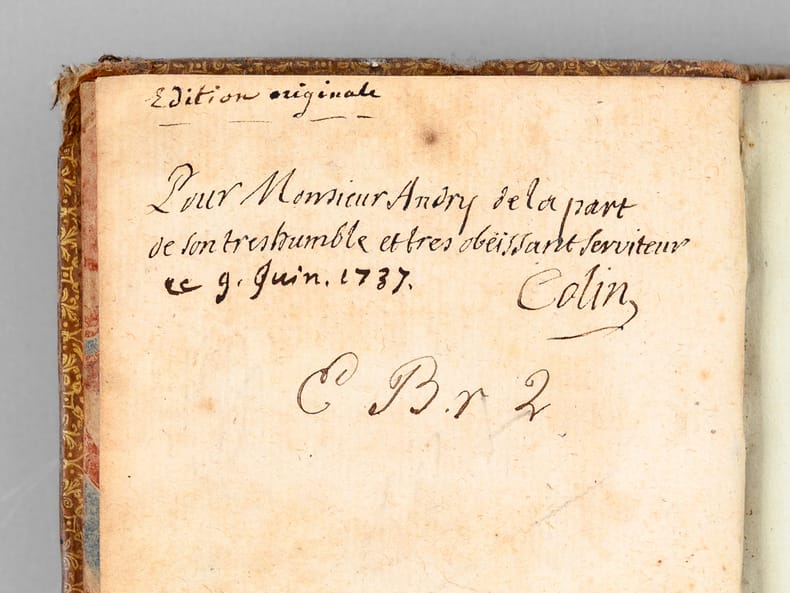 Edition originale
Pour Monsieur Andry de la part
de son tres humble et tres obëissant serviteur
ce 9. Juin. 1737.
Colin
C B. r 2